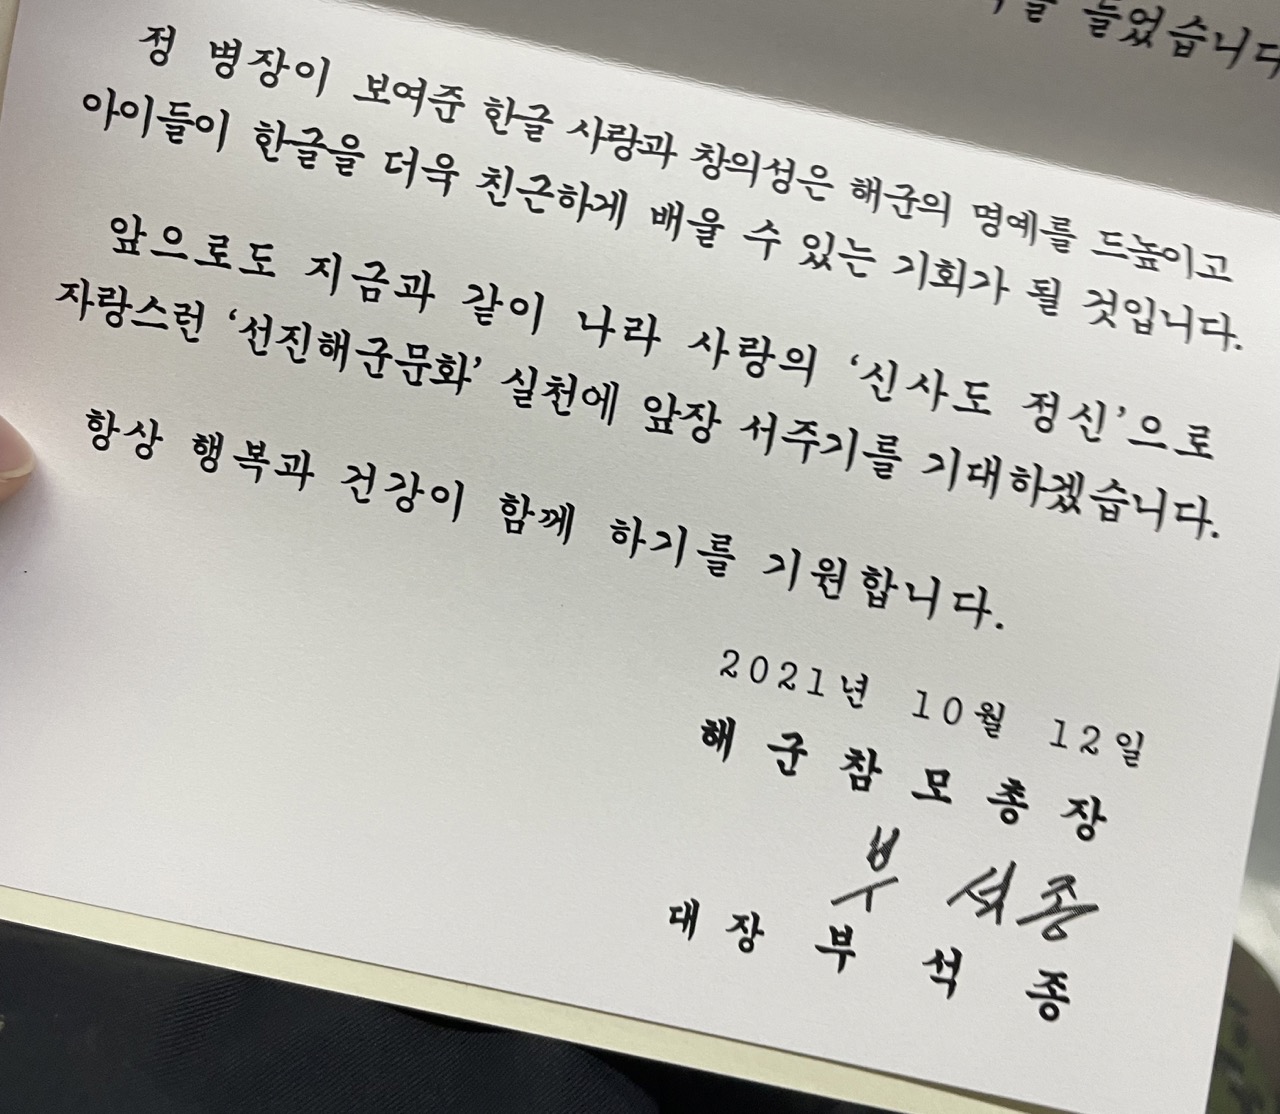 들었습니다
정 병장이 보여준 한글 사랑과 창의성은 해군의 명예를 드높이고
아이들이 한글을 더욱 친근하게 배울 수 있는 기회가 될 것입니다.
앞으로도 지금과 같이 나라 사랑의 ‘신사도 정신’으로
자랑스런 ‘선진해군문화’ 실천에 앞장 서주기를 기대하겠습니다.
항상 행복과 건강이 함께 하기를 기원합니다.
2021년 10월 12일
해군참모총장
부석종
대장 부석종